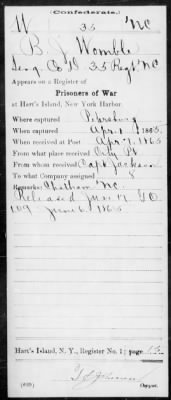 (Confederate.)
W 35 NC
B. J. Womble
Serg, Co D, 35 Regt NC
Appears on a Register of
Prisoners of War
at Hart's Island, New York Harbor.
Where captured Petersburg
When captured Apr. 1, 1865.
Received at Post Apr. 7, 1865
From what place received City Pt
From whom received Capt Jackson
To what company assigned 8
Remarks: Chatham NC.
Released June 17 G.O.
109 June 6, 1865
Hart's Island, N. Y., Register No. 1; page 13
(639) Copyist.